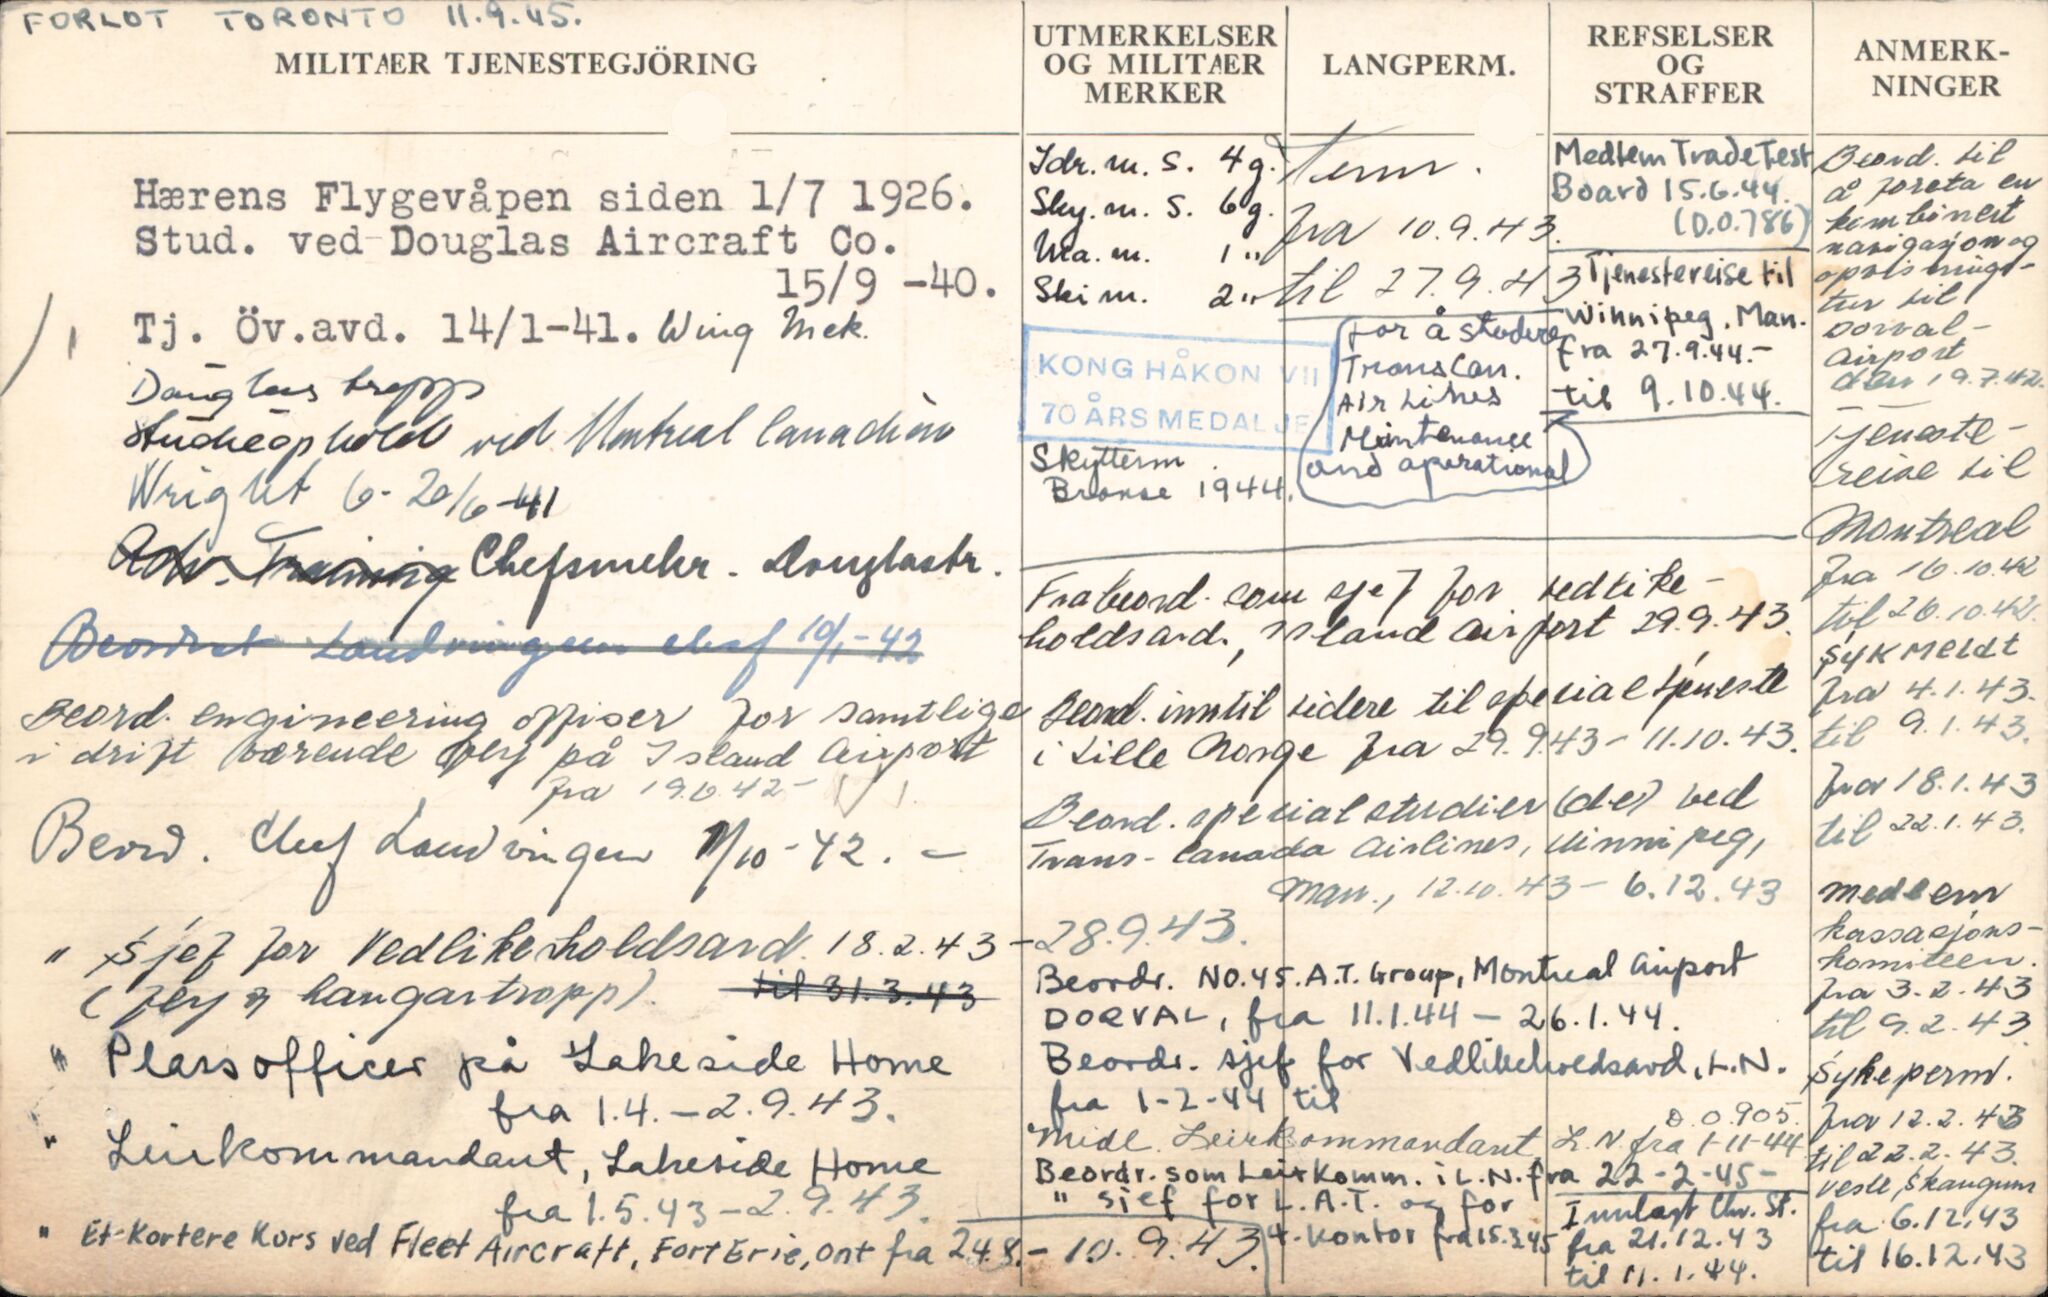 FORLOT TORONTO 11.9.45.
MILITÆR TJENESTEGJÖRING
Hærens Flygevåpen siden 1/7 1926.
Stud. ved Douglas Aircraft Co.
15/9 -40.
Tj. Öv.avd. 14/1-41. Wing Mek.
Douglas tropp
Studieophold ved Montreal Canadian
Wright 6-20/6-41
Adv. Training Chefsmekr. Douglastr.
Beordret Landvingen chef 10/1-42
Beord. engineering offiser for samtlige
i drift værende fly på Island Airport
fra 19.6.42-
Beord. Chef Landvingen 1/10-42. -
" Sjef for Vedlikeholdsavd. 18.2.43 - 28.9.43.
(fly & hangartropp). til 31.3.43
" Plassofficer på Lakeside Home
fra 1.4. - 2.9.43.
" Leirkommandant, Lakeside Home
fra 1.5.43 - 2.9.43.
" Et kortere kurs ved Fleet Aircraft, Fort Erie, Ont fra 24.8. - 10.9.43.
UTMERKELSER
OG MILITÆR
MERKER
Idr. m. S. 4 g.
Sky. m. S. 6 g.
Ma. m. 1 "
Ski m. 2 "
KONG HÅKON VII
70 ÅRS MEDALJE
Skytterm.
Bronse 1944.
LANGPERM.
Perm.
fra 10.9.43.
til 27.9.43
for å studere
TransCan.
Air Lines
Maintenance
and operational
REFSELSER
OG
STRAFFER
Medlem Trade Test
Board 15.6.44.
(D.O.786)
Tjenestereise til
Winnipeg, Man.
fra 27.9.44.-
til 9.10.44.
Frabeord. som sjef for vedlike-
holdsavd., Island Airport 29.9.43.
Beord. inntil videre til spesialtjeneste
i Lille Norge fra 29.9.43 - 11.10.43.
Beord. spesialstudier (de) ved
Trans-Canada Airlines, Winnipeg,
Man., 12.10.43 - 6.12.43
Beordr. No.45.A.T. Group, Montreal Airport
DORVAL, fra 11.1.44 - 26.1.44.
Beordr. sjef for Vedlikeholdsavd, L.N.
fra 1-2-44 til
D.O.905.
Midl. Leirkommandant, L.N. fra 1-11-44
Beordr. som Leirkomm. i L.N. fra 22-2-45-
" sjef for L.A.T. og for
4. kontor fra 15.3.45
Innlagt Chr. St.
fra 21.12.43
til 11.1.44.
ANMERK-
NINGER
Beord. til
å foreta en
kombinert
navigasjon og
opvisnings-
tur til
Dorval-
Airport
den 19.7.42.
Tjeneste-
reise til
Montreal
fra 16.10.42
til 26.10.42.
Sykmeldt
fra 4.1.43.
til 9.1.43.
fra 18.1.43
til 22.1.43.
Medlem
kassasjons-
komiteen.
fra 3.2.43
til 9.2.43.
Sykeperm.
fra 12.2.43
til 22.2.43.
Vesle Skaugum
fra 6.12.43
til 16.12.43